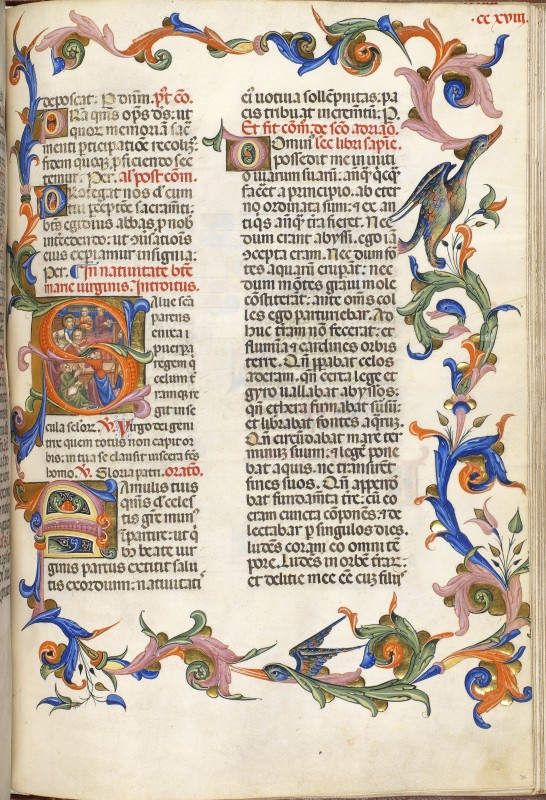 ·cc xviij.
deposcat: P dominum. p't co.
Ora quis ops ds: ut
quor memoriam sac
menti pticipatione recolim
fidem quoq; pficiendo sec
temur. Per. al' post com.
Prosegat nos d' cum
tui pceptõe sacramti:
btus egidius abbas p nob
intercedendo: ut 
cius expiamur insignia:
Per. In natiuitate bte
marie uirginis. Introitus.
Salue scã
parens
enixa
puerpa
regem q
celum t
ramq; re
git in se
cula seloz. V. Virgo dei geni
trix quem totus non capit or
bis: in tua se clausit uiscera fcs
homo. V. Gloria patri. oratio.
Famulis tuis
qs d' celes
tis gre mun'
impartire: ut q
bo beate uir
ginis partus extitit salu
tis exordium: natiuitati
ei' uotiua sollempnitas: pa
cis tribuat incremtu: P.
Et fit com: de sco adriano.
lec libri sapie.
Domin'
possedit me in initi
o uiarum suarum: anq; qcq;
facet a principio. ab eter
no ordinata sum: et ex an
tiqs anq; tra fieret. Nec
dum erant abyssi. ego ia
ccepta eram. Nec dum fo
tes aquarum erupat: nec
dum motes graui mole
constiterat: ante omis col
les ego parturiebar. Ad
huc tram non fecerat: et
flumia et cardines orbis
terre. Qn ppabat celos
aderam. qn certa lege et
gyro uallabat abyssos:
qn ethera firmabat susu:
et librabat fontes aqruz.
Qn circudabat mare ter
minum suum: et lege pone
bat aquis. ne transiret
fines suos. Qn appende
bat fundamta tre: cu eo
eram cuncta copones: et de
lectabar p singulos dies.
ludes coram eo omni tem
pore. Ludes in orbe trarz:
et delitie mee ee cuz filiis